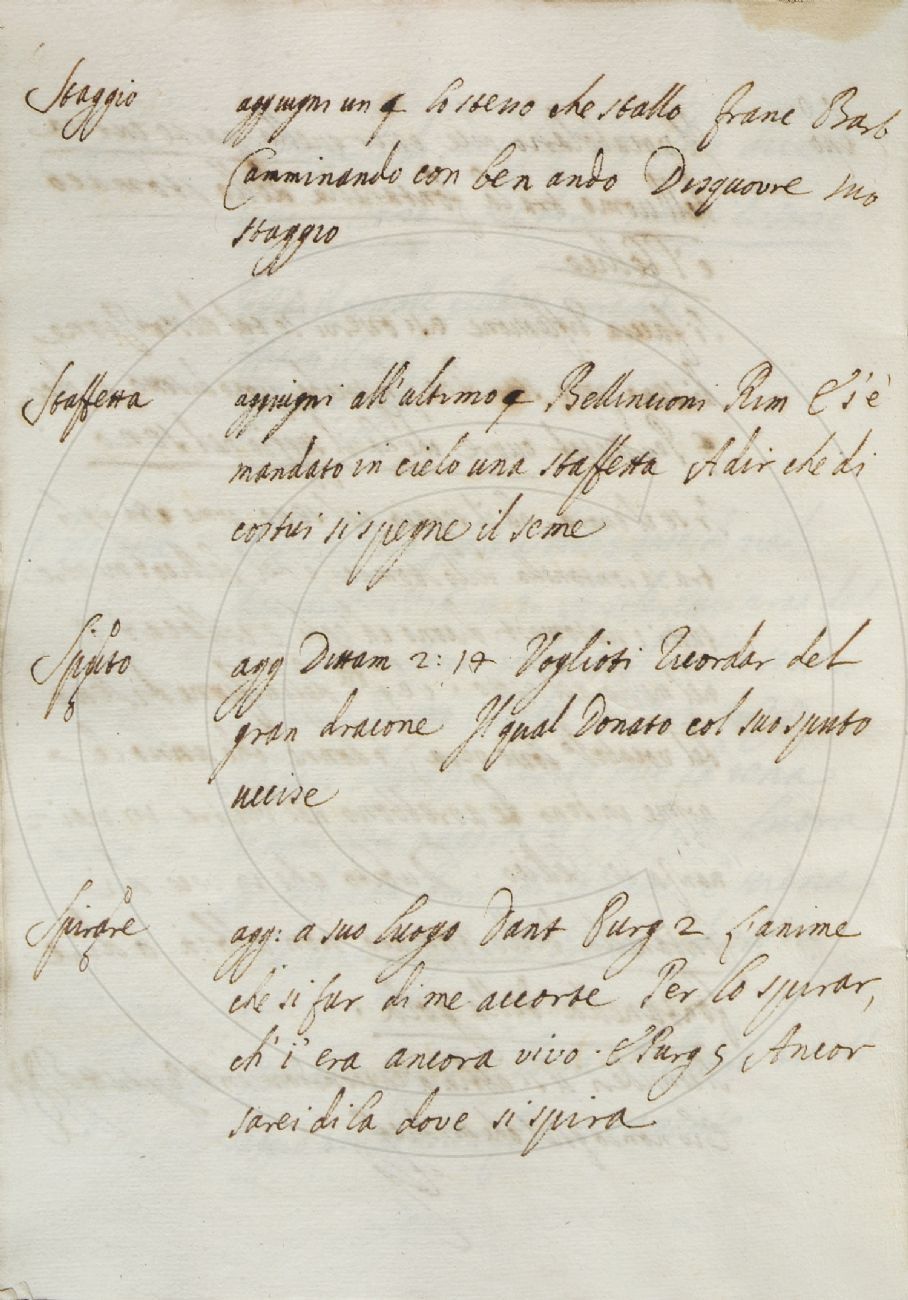 Staggio aggiugni un § lo stesso che stallo franc Barb
Camminando con ben ando Disquovre suo
staggio
Staffetta aggiugni all'altimo § Bellincioni Rim E s'è
mandato in cielo una staffetta A dir che di
costui si spegne il seme
Sputo agg Dittam 2: 14 Voglioti ricordar del
gran dracone Il qual Donato col suo sputo
uccise
Spirare agg: a suo luogo Dant Purg 2 L'anime
che si fur di me accorte Per lo spirar,
ch'i' era ancora vivo. E Purg 5 Ancor
sarei di la dove si spira